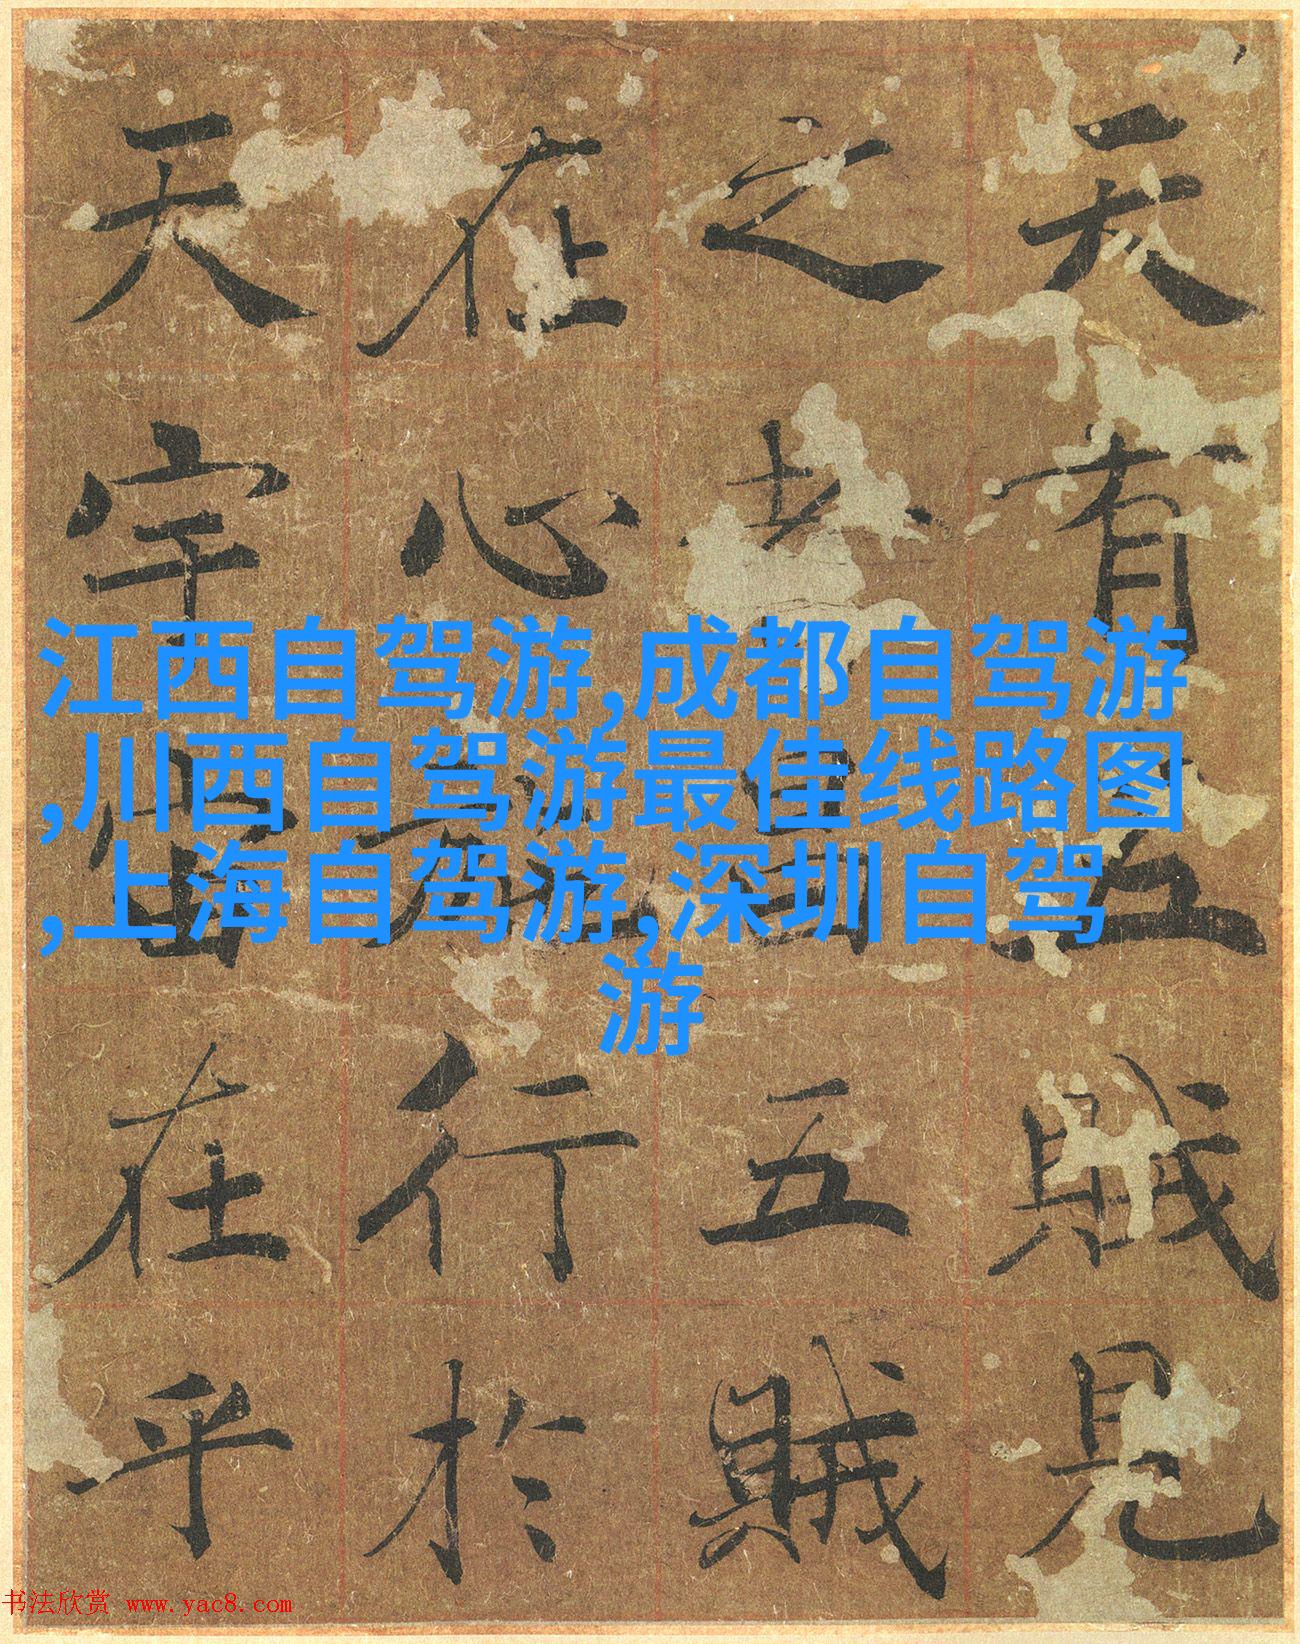 天有五賊見
之昌五賊
在心行於
天宇宙在乎
江西自驾游,成都自驾游
,川西自驾游最佳线路图
,上海自驾游,深圳自驾
游
书法欣赏 www.yac8.com